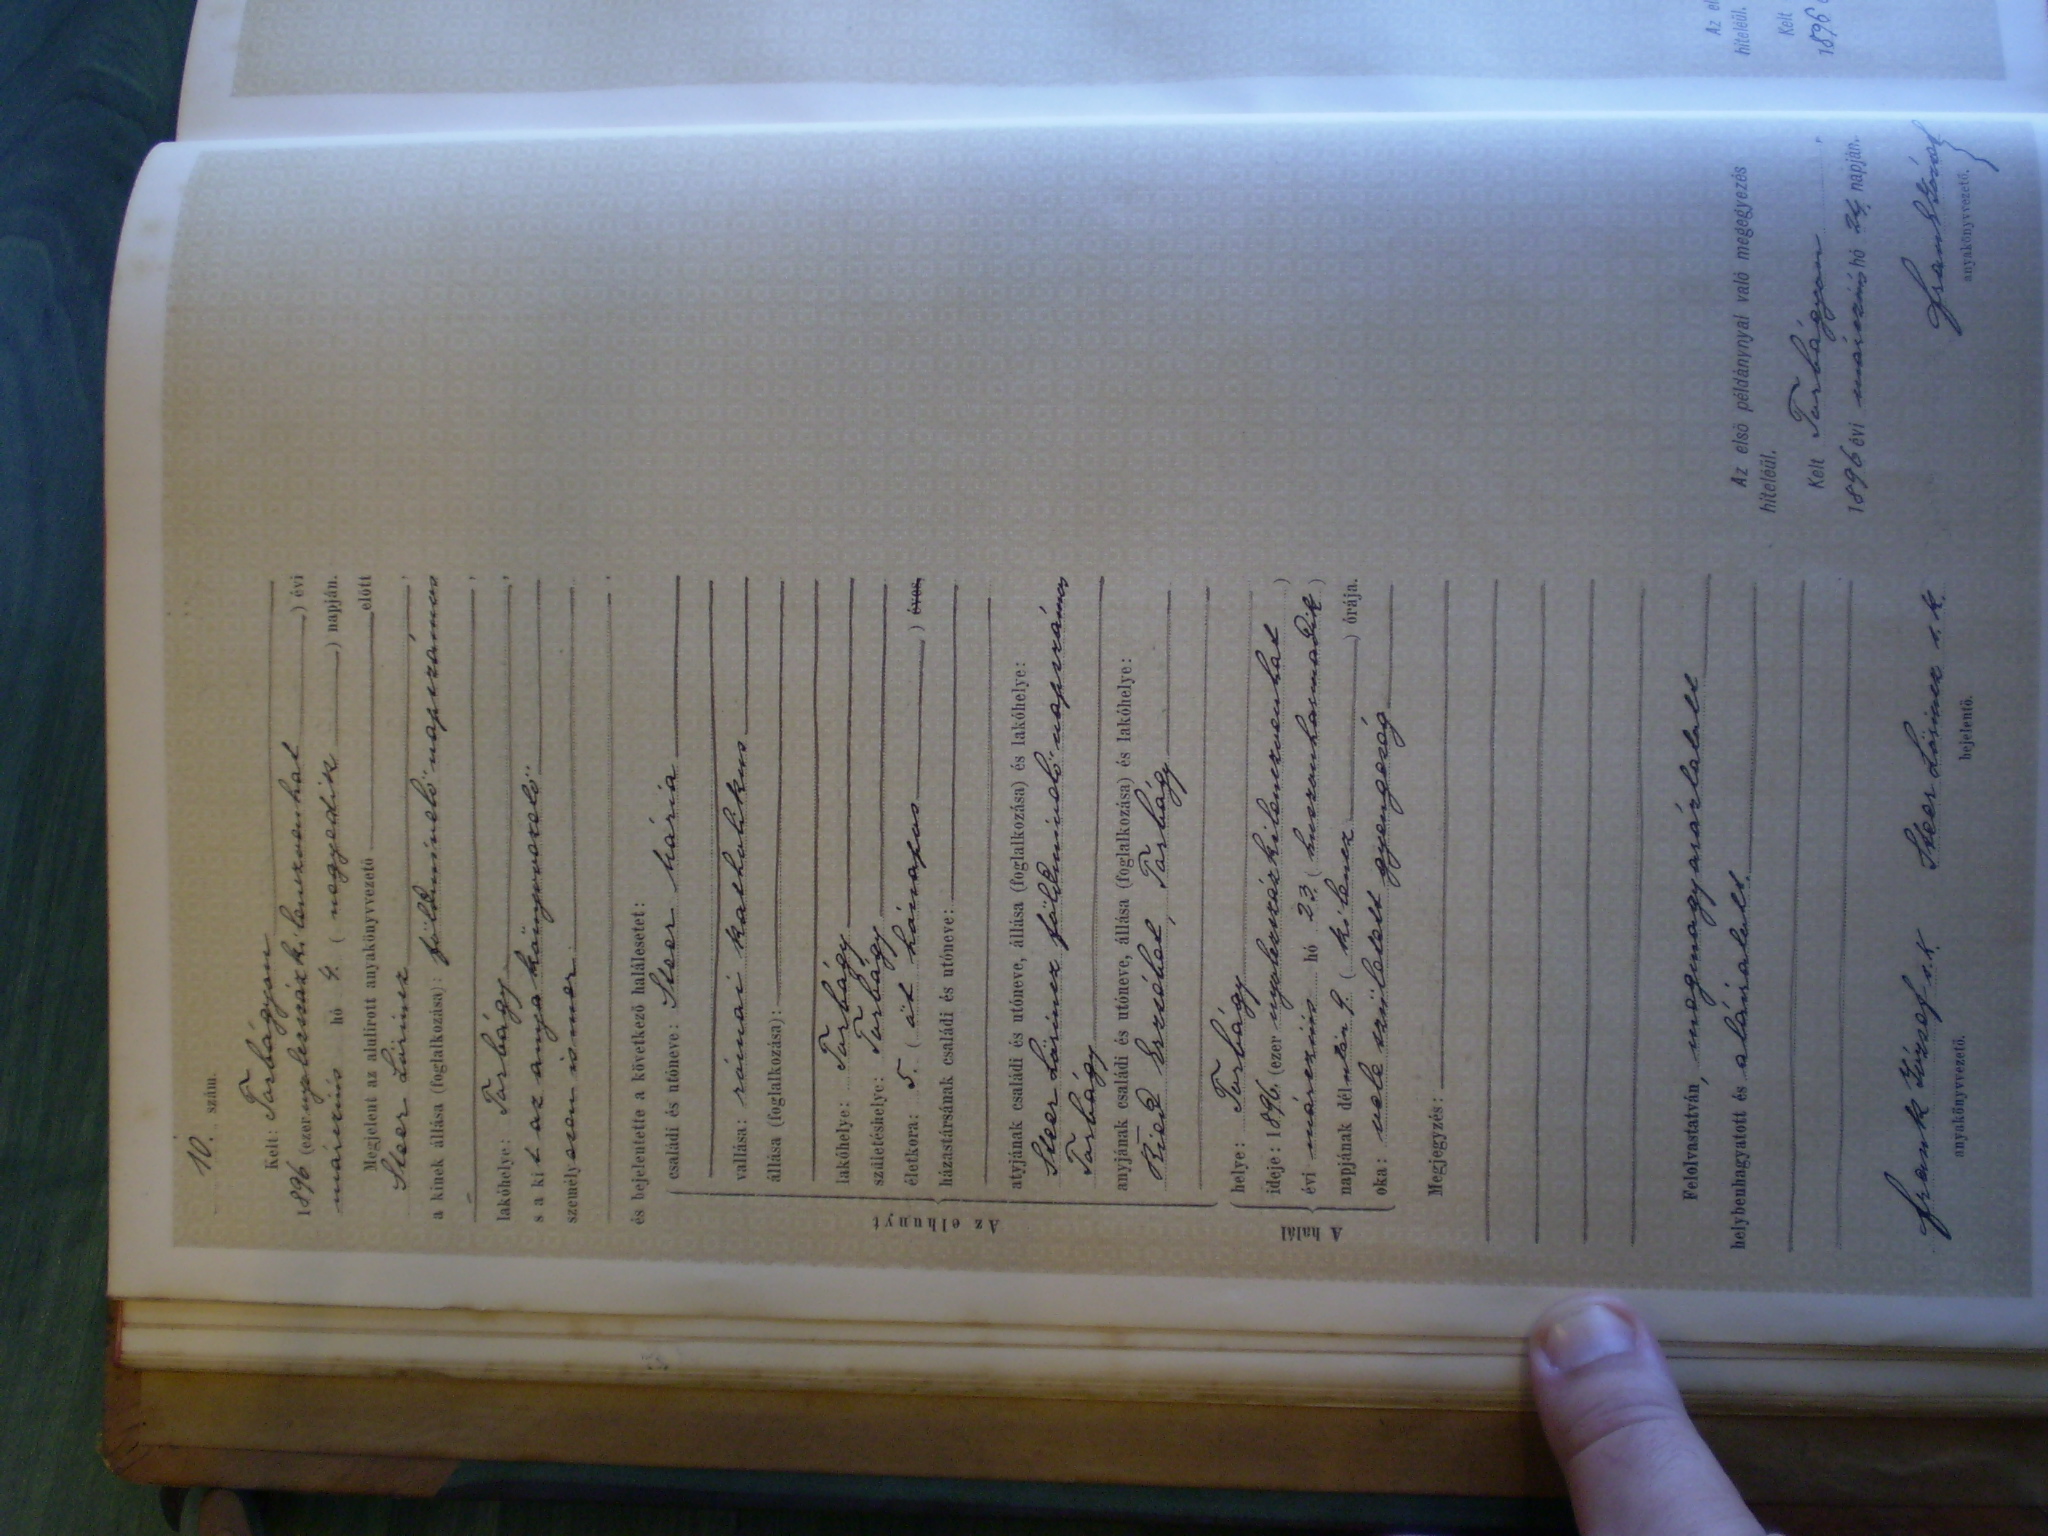 10. szám.
Kelt: Torbágyon
1896 (ezernyolcszázkilenczvenhat) évi
márczius hó 4. (negyedik) napján.
Megjelent az alulirott anyakönyvvezető előtt
Steer Lőrincz
a kinek állása (foglalkozása): földmivelő napszámos
lakóhelye: Torbágy
s a kit az anyakönyvvezető
személyesen ismer
és bejelentette a következő halálesetet:
Az elhunyt
családi és utóneve: Steer Mária
vallása: római katholikus
állása (foglalkozása):
lakóhelye: Torbágy
születéshelye: Torbágy
életkora: 5. (öt hónapos) éves,
házastársának családi és utóneve:
atyjának családi és utóneve, állása (foglalkozása) és lakóhelye:
Steer Lőrincz földmivelő napszámos
Torbágy
anyjának családi és utóneve, állása (foglalkozása) és lakóhelye:
Erzsébet, Torbágy
A halál
helye: Torbágy
ideje: 1896. (ezernyolcszázkilenczvenhat)
évi márczius hó 23. (huszonharmadik)
napjának délután 9. (kilencz) órája.
oka: vele született gyengeség
Megjegyzés:
Felolvastatván, megmagyaráztatott
helybenhagyatott és aláiratott.
Frank József s. k. Steer Lőrincz s. k.
anyakönyvvezető. bejelentő.
Az első példánynyal való megegyezés
hiteléül.
Kelt Torbágyon,
1896 évi márczius hó 24 napján.
Frank József
anyakönyvvezető.
Az el
hiteléül.
Kelt
1896